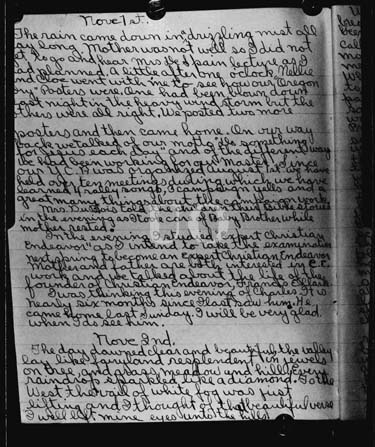 Nov. 1st.
The rain came down in drizzling mist all
day long. Mother was not well so I did not
get to go and hear Mrs. De Spain lecture as I
had planned. A little after one o'clock Nellie
and Cloe went with me to see how our Oregon
Dry" Posters were. One had been blown down
last night in the heavy wind storm but the
others were all right. We posted two more
posters and then came home. On our way
back we talked of our motto "Do something
for Jesus Each Day" and of the different way
we had been working for our Master. Since
our Y.C. was organized August 1st we have
held our ten meetings during which we have
learned rally songs, campaign yells and a
great many things about the campaign work.
Mrs. Dubois told me down their Bible stories
in the evening as I took care of Baby Brother while
mother rested.
In the evening I studied "Expert Christian
Endeavor" as I intend to take the examination
next spring to become an Expert Christian Endeavor
Mother and Father are both interested in C.E.
work and we talked about the life of the
founder of Christian Endeavor Francis E. Clark.
I was thinking this evening of Charles. It is
nearly six months since I last saw him. He
came home last Sunday. I will be very glad
when I do see him.
Nov. 2nd.
The day dawned clear and beautiful, the valley
lay like fairyland resplendent in jewels
on tree, and grass meadow and hill. Every
raindrop sparkled like a diamond. To the
West the veil of white fog was just
lifting and I thought of that beautiful verse
I will lift mine eyes unto the hills